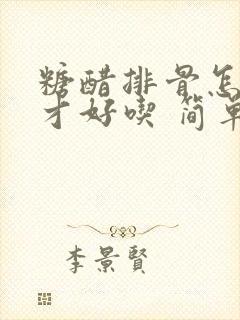 糖醋排骨怎
才好喫 简单
李景賢